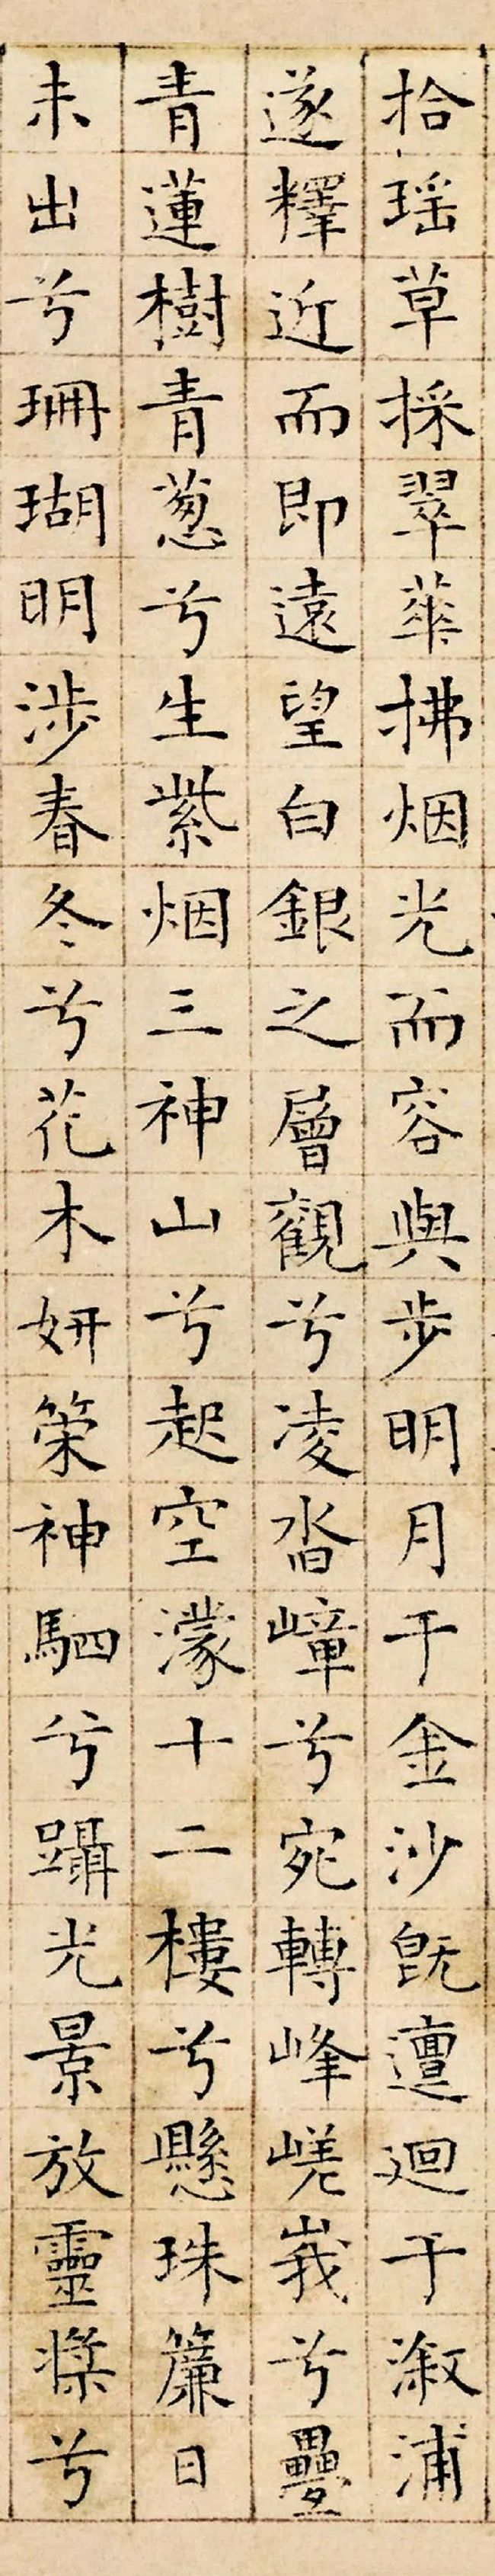 拾瑶草採翠華拂烟光而容與步明月于金沙既邅迴于溆浦
遂釋近而即遠望白銀之層觀兮凌沓嶂兮宛轉峰嵯峩兮疊
青蓮樹青葱兮生紫烟三神山兮起空濛十二樓兮懸珠簾日
未出兮珊瑚明涉春冬兮花木妍策神駟兮躡光景放靈槳兮